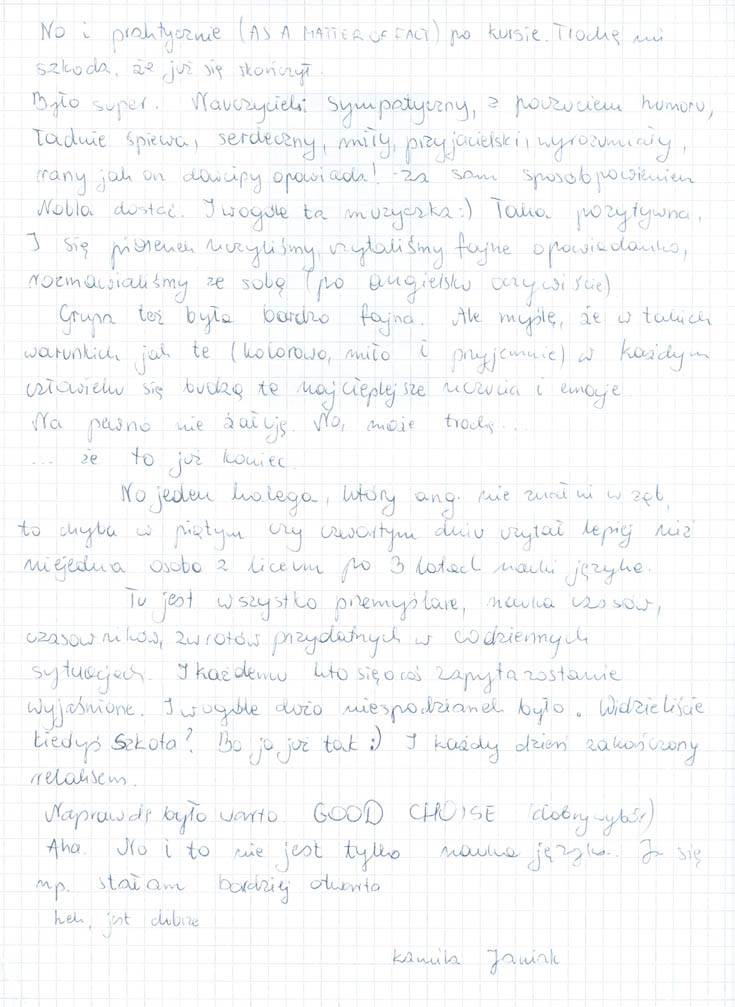 No i praktycznie (AS A MATTER OF FACT) po kursie. Trochę mi
szkoda, że już się skończył.
Było super. Nauczyciel: sympatyczny, z poczuciem humoru,
ładnie śpiewa, serdeczny, miły, przyjacielski, wyrozumiały,
rany jak on dowcipy opowiada! Za sam sposób powinien
Nobla dostać. I wogóle ta muzyczka:) Taka pozytywna.
I się piosenek uczyliśmy, czytaliśmy fajne opowiadanka,
rozmawialiśmy ze sobą (po angielsku oczywiście)
Grupa też była bardzo fajna. Ale myślę, że w takich
warunkach jak te (kolorowo, miło i przyjemnie) w każdym
człowieku się budzą te najcieplejsze uczucia i emocje.
Na pewno nie żałuję. No, może trochę...
... że to już koniec.
No jeden kolega, który ang. nie znał ni w ząb,
to chyba w piątym czy czwartym dniu czytał lepiej niż
niejedna osoba z liceum po 3 latach nauki języka.
Tu jest wszystko przemyślane, nauka czasów,
czasowników, zwrotów przydatnych w codziennych
sytuacjach. I każdemu kto się o coś zapyta zostanie
wyjaśnione. I wogóle dużo niespodzianek było. Widzieliście
kiedyś Szkota? Bo ja już tak :) I każdy dzień zakończony
relaksem.
Naprawdę było warto. GOOD CHOISE (dobry wybór)
Aha. No i to nie jest tylko nauka języka. Ja się
np. stałam bardziej otwarta
heh, jest dobrze
Kamila Janiak